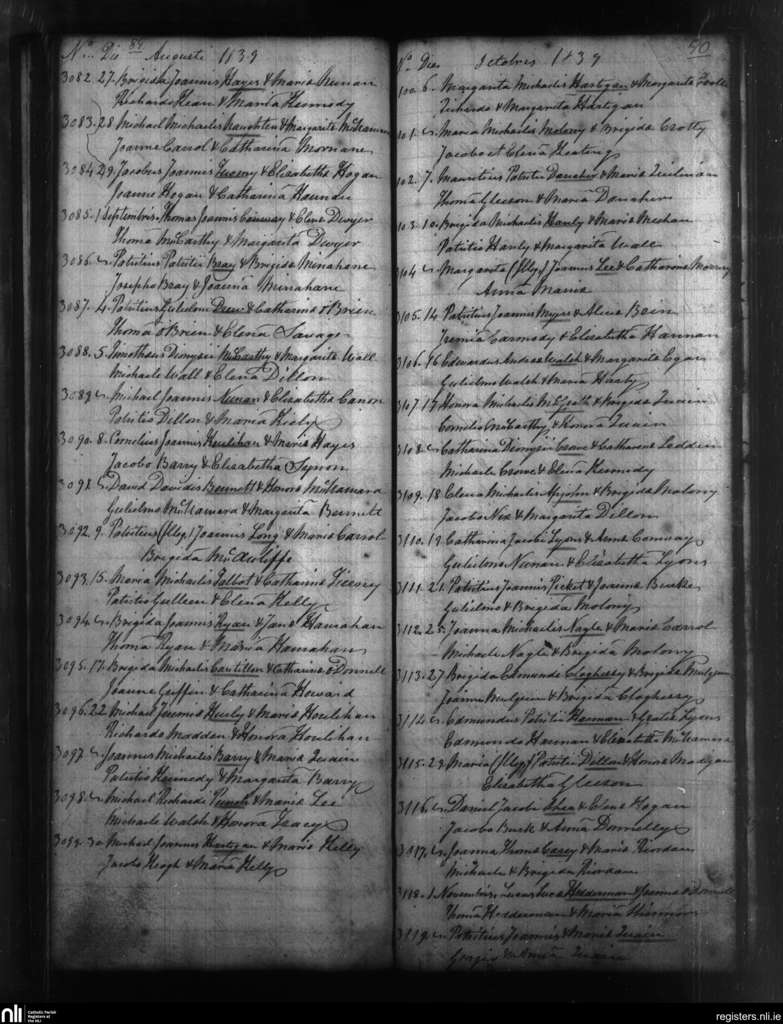 No. Die 89 Augusti 1839
3082. 27. Brigida Joannis Hayes & Maria Neunan
Richardo Kean & Maria Kennedy
3083. 28 Michael Michaelis Naughten & Margarita McNamara
Joanne Carrol & Catharina
3084. 29. Jacobus Joannis & Elizabetha Hogan
Joanne Hogan & Catharina
3085. 1 Septembris, Thomas Joannis Conway & Elena Dwyer
Thoma McCarthy & Margarita Dwyer
3086. " Patritius Patritii Bray & Brigida Minahane
Josepho Bray & Joanna Minahane
3087. 4. Patritius Gulielmi & Catharina O'Brien
Thoma O'Brien & Elena Savage
3088. 5. Timotheus Dionysii McCarthy & Margarita Wall
Michaele Wall & Elena Dillon
3089. " Michael Joannis Neunan & Elizabetha Canon
Patritio Dillon & Maria Kiely
3090. 8. Cornelius Joannis Houlihan & Maria Hayes
Jacobo Barry & Elisabetha Synon
3091. " David Davidis Bennett & Honora McNamara
Gulielmo McNamara & Margarita Bennett
3092. 9. Patritius (Illeg.) Joannis Long & Maria Carrol
Brigida McAuliffe
3093. 15. Maria Michaelis Talbot & Catharina
Patritio Culleen & Elena Kelly
3094. " Brigida Joannis Ryan & Jana Hanrahan
Thoma Ryan & Maria Hanrahan
3095. 17. Brigida Michaelis Cantillon & Catharina O'Donnell
Joanne Griffin & Catharina Howard
3096. 22 Michael Jeremiæ Healy & Maria Houlihan
Richardo Madden & Honora Houlihan
3097. " Joannes Michaelis Barry & Maria Quain
Patritio Kennedy & Margarita Barry
3098. " Michael Richardi Punch & Maria Lee
Michaele Walsh & Honora Tracey
3099. 30 Michael Joannis Hartigan & Maria Kelly
Jacobo Keogh & Maria Kelly
No. Die Octobris 1839 90
100. 6. Margarita Michaelis Hartigan & Margarita Poole
Richardo & Margarita Hartigan
101. " Maria Michaelis Molony & Brigida Crotty
Jacobo et Elena Keating
102. 7. Mauritius Patritii Danaher & Maria Quilinan
Thoma Gleeson & Maria Danaher
103. 10. Brigida Michaelis Hanly & Maria Meehan
Patritio Hanly & Margarita Wall
3104 " Margarita (Illeg.) Joannis Lee & Catharina
Anna Maria
3105. 14 Patritius Joannis Myers & Alicia Bein
Jeremia Carmody & Elizabetha Hannan
3106. 16 Edwardus Andreæ Walsh & Margarita Egan
Gulielmo Walsh & Maria Harty
3107. 17 Honora Michaelis McGrath & Brigida Quain
Cornelio McCarthy, & Honora Quain
3108. " Catharina Dionysii Crowe & Catharina Leddin
Michaele Crowe & Elena Kennedy
3109. 18 Elena Michaelis Apjohn & Brigida Molony
Jacobo Nix & Margarita Dillon
3110. 19. Catharina Jacobi Lyons & Anna Conway
Gulielmo Neunan & Elizabetha Lyons
3111. 21. Patritius Joannis Picket & Joanna Burke
Gulielmo & Brigida Molony
3112. 25. Joanna Michaelis Nagle & Maria Carrol
Michaele Nagle & Brigida Molony
3113. 27 Brigida Edmundi Cloghessy & Brigida Mulqueen
Joanne Mulqueen & Brigida Cloghessy
3114. " Edmundus Patritii Hannan & Gratia Lyons
Edmundo Hannan & Elizabetha McNamara
3115. 29. Maria (Illeg.) Patritii Dillon & Honora Madigan
Elizabetha Gleeson
3116. " Daniel Jacobi Shea & Elena Hogan
Jacobo Burk & Anna Donnelly
3017. " Joanna Thomæ Casey & Maria Riordan
Michaele & Brigida Riordan
3118. 1 Novembris, Lucas Lucæ Hedderman & Joanna O'Donnell
Thoma Hedderman & Maria
3119. " Patritius Joannis & Maria Quain
& Anna Quain
nli Catholic Parish Registers at the NLI
registers.nli.ie